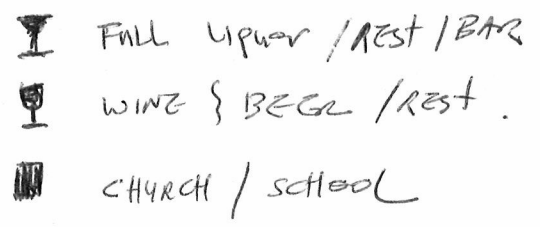 Full Liquor / REST / BAR
WINE & BEER / REST.
CHURCH / SCHOOL